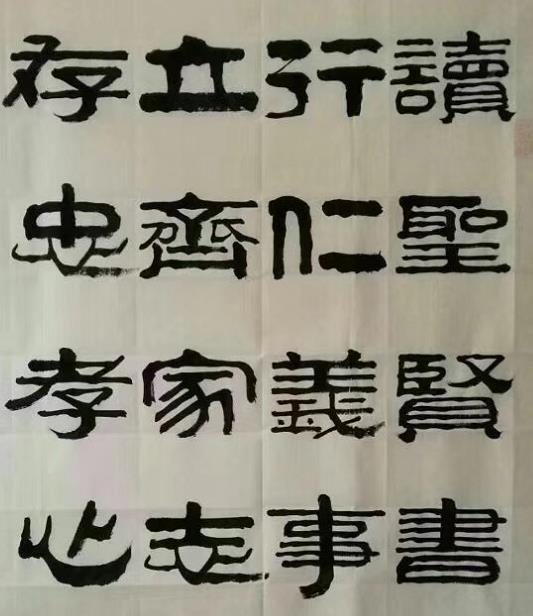 讀聖賢書
行仁義事
立齊家志
存忠孝心